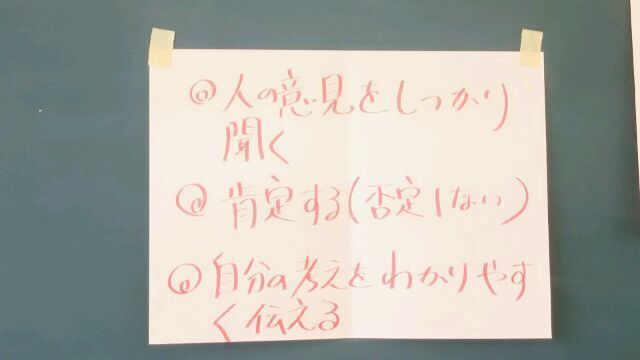 ◎人の意見をしっかり
聞く
◎肯定する(否定しない)
◎自分の考えをわかりやす
く伝える